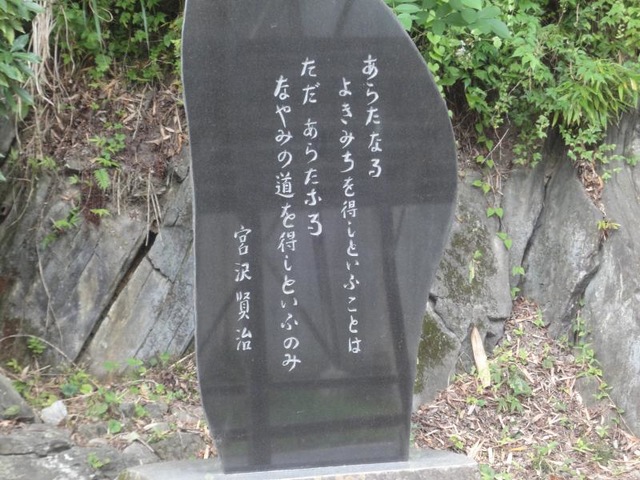 あらたなる
よきみちを得しといふことは
ただあらたなる
なやみの道を得しといふのみ
宮沢賢治